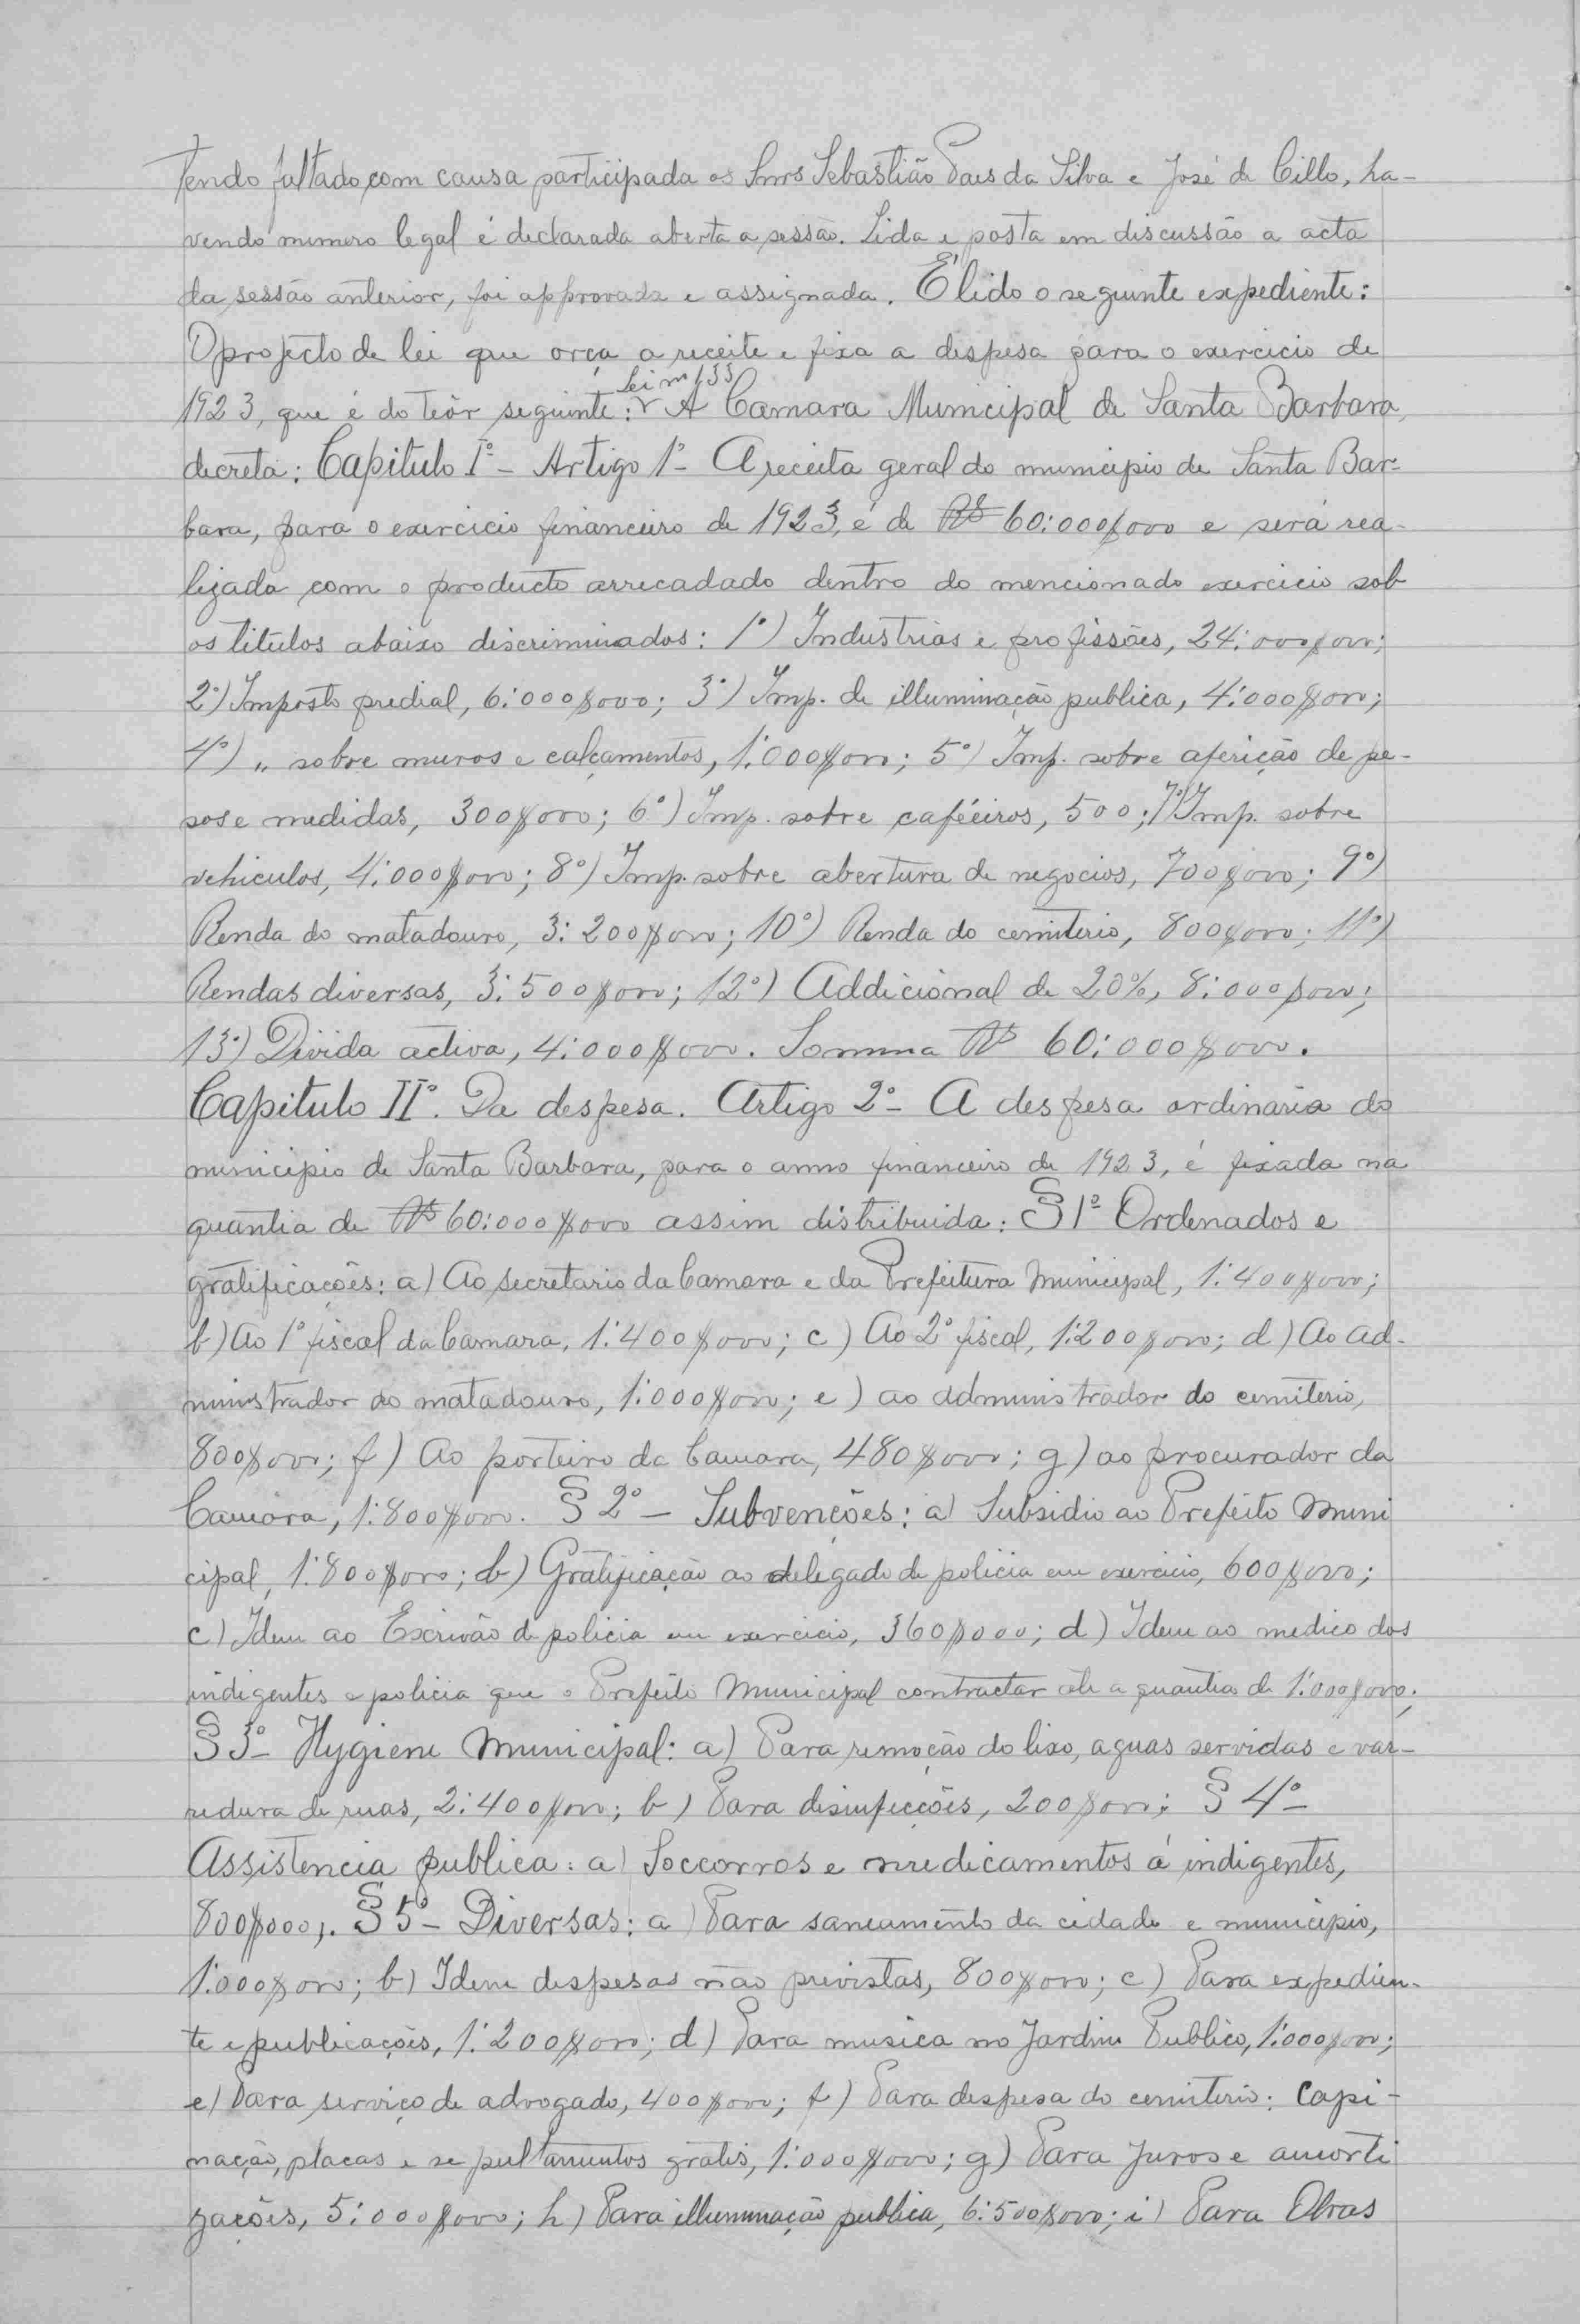 Tendo faltado, com causa participada os Snrs Sebastião Paes da Silva e José de Cillo, ha-
vendo numero legal é declarada aberta a sessão. Lida e posta em discussão a acta
da sessão anterior, foi approvada e assignada. É lido o seguinte expediente:
O projecto de lei que orça a receite e fixa a despesa para o exercicio de
lei nº 133
1923, que é do teôr seguinte: A Camara Municipal de Santa Barbara,
decreta: Capitulo Iº - Artigo 1º - A receita geral do municipio de Santa Bar-
bara, para o exercicio financeiro de 1923, é de Rs 60:000$000 e será rea-
lizada com o producto arrecadado dentro do mencionado exercicio sob
os titulos abaixo discriminados: 1º) Industrias e profissões, 24:000$000;
2º) Imposto predial, 6:000$000; 3º) Imp. de illuminação publica, 4:000$000;
4º) " sobre muros e calçamentos, 1:000$000; 5º) Imp. sobre aferição de pe-
sos e medidas, 300$000; 6º) Imp. sobre caféeiros, 500; 7º) Imp. sobre
vehiculos, 4:000$000; 8º) Imp. sobre abertura de negocios, 700$000; 9º)
Renda do matadouro, 3:200$000; 10º) Renda do cemiterio, 800$000; 11º)
Rendas diversas, 3:500$000; 12º) Addicional de 20%, 8:000$000;
13º) Divida activa, 4:000$000. Somma Rs 60:000$000.
Capitulo IIº. Da despesa. Artigo 2º - A despesa ordinaria do
municipio de Santa Barbara, para o anno financeiro de 1923, é fixada na
quantia de Rs 60:000$000 assim distribuida: § 1º Ordenados e
gratificações: a) Ao secretario da Camara e da Prefeitura Municipal, 1:400$000;
b) Ao 1º fiscal da Camara, 1:400$000; c) Ao 2º fiscal, 1:200$000; d) Ao ad-
ministrador do matadouro, 1:000$000; e) ao administrador do cemiterio,
800$000; f) Ao porteiro da Camara, 480$000; g) ao procurador da
Camara, 1:800$000. § 2º - Subvenções: a) Subsidio ao Prefeito Muni
cipal, 1:800$000; b) Gratificação ao delegado de policia em exercicio, 600$000;
c) Idem ao Escrivão de policia em exercicio, 360$000; d) Idem ao medico dos
indigentes e policia que o Prefeito Municipal contractar até a quantia de 1:000$000;
§ 3º - Hygiene Municipal: a) Para remoção do lixo, aguas servidas e var-
redura de ruas, 2:400$000; b) Para disinfecções, 200$000; § 4º -
Assistencia publica: a) Soccorros e medicamentos á indigentes,
800$000;. § 5º - Diversas: a) Para saneamento da cidade e municipio,
1:000$000; b) Idem despesas não previstas, 800$000; c) Para expedien-
te e publicações, 1:200$000; d) Para musica no Jardim Publico, 1:000$000;
e) Para serviço de advogado, 400$000; f) Para despesa do cemiterio: Capi-
nação, placas e sepultamentos gratis, 1:000$000; g) Para juros e amorti
zações, 5:000$000; h) Para illuminação publica, 6:500$000; i) Para Obras